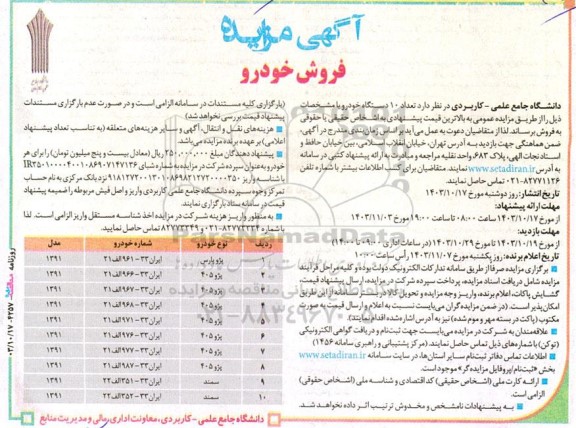 آگهی مزایده
فروش خودرو
دانشگاه جامع علمی - کاربردی در نظر دارد تعداد ۱۰ دستگاه خودرو با مشخصات
ذیل را از طریق مزایده عمومی به بالاترین قیمت پیشنهادی به اشخاص حقیقی یا حقوقی
به فروش برساند. لذا از متقاضیان دعوت به عمل می‌آید بر اساس زمان‌بندی مندرج در آگهی،
ضمن هماهنگی جهت بازدید به آدرس تهران، خیابان انقلاب اسلامی، بین خیابان حافظ و
استاد نجات الهی، پلاک ۶۸۳، واحد نقلیه مراجعه و مبادرت به ارائه پیشنهاد کتبی در سامانه
به آدرس www.setadiran.ir نمایند. متقاضیان برای کسب اطلاعات بیشتر با شماره تلفن
۰۲۱-۸۲۷۷۱۱۳۶ تماس حاصل نمایند.
تاریخ انتشار: روز دوشنبه مورخ ۱۴۰۳/۱۰/۱۷
مهلت ارائه پیشنهاد:
از مورخ ۱۴۰۳/۱۰/۱۷ ساعت ۰۸:۰۰ تا ساعت ۱۹:۰۰ مورخ ۱۴۰۳/۱۱/۰۳
مهلت بازدید:
از مورخ ۱۴۰۳/۱۰/۱۹ تا مورخ ۱۴۰۳/۱۰/۲۹ (در ساعات اداری ۰۹:۰۰ تا ۱۴:۰۰)
تاریخ اعلام برنده: روز یکشنبه مورخ ۱۴۰۳/۱۱/۰۷ رأس ساعت ۱۰:۰۰
برگزاری مزایده صرفا از طریق سامانه تدارکات الکترونیک دولت بوده و کلیه مراحل فرآیند
مزایده شامل دریافت اسناد مزایده، پرداخت سپرده شرکت در مزایده، ارسال پیشنهاد قیمت،
گشایش پاکات، اعلام برنده، واریز وجه مزایده و تحویل کالا در بستر سامانه از این طریق
امکان‌پذیر است. (در ضمن مزایده‌گران می‌بایست نسبت به اعلام و ارسال قیمت به صورت
مکتوب (پاکت در بسته مهر و موم شده) نیز به آدرس اشاره شده اقدام نمایند)
علاقه‌مندان به شرکت در مزایده می‌بایست جهت ثبت‌نام و دریافت گواهی الکترونیکی
(توکن) با شماره‌های ذیل تماس حاصل نمایند. (مرکز پشتیبانی و راهبری سامانه ۱۴۵۶)
اطلاعات تماس دفاتر ثبت‌نام سایر استان‌ها، در سایت سامانه www.setadiran.ir
بخش «ثبت‌نام/پروفایل مزایده گر» موجود است.
ارائه کارت ملی (اشخاص حقیقی) کد اقتصادی و شناسه ملی (اشخاص حقوقی)
الزامی است.
به پیشنهادات نامشخص و مخدوش ترتیب اثر داده نخواهد شد.
(بارگزاری کلیه مستندات در سامانه الزامی است و در صورت عدم بارگزاری مستندات
پیشنهاد قیمت بررسی نخواهد شد)
هزینه‌های نقل و انتقال، آگهی و سایر هزینه‌های متعلقه (به تناسب تعداد پیشنهاد
اعلامی) بر عهده برنده مزایده می‌باشد.
پیشنهاد دهندگان مبلغ
تمرکز وجوه سپرده دانشگاه جامع علمی کاربردی واریز و اصل فیش مربوطه را ضمیمه پیشنهاد
قیمت در سامانه ستاد بارگزاری نمایند.
به منظور واریز هزینه شرکت در مزایده اخذ شناسه مستقل واریز الزامی است. لذا
تماس حاصل نمایید.
ردیف نوع خودرو شماره خودرو مدل
۱ پژو پارس ۱۳۹۱
۲ پژو ۴۰۵ ۱۳۹۱
۳ پژو ۴۰۵ ۱۳۹۱
۴ پژو ۴۰۵ ۱۳۹۱
۵ پژو ۴۰۵ ۱۳۹۱
۶ پژو ۴۰۵ ۱۳۹۱
۷ پژو ۴۰۵ ۱۳۹۱
۸ پژو ۴۰۵ ۱۳۹۱
۹ سمند ۱۳۹۱
۱۰ سمند ۱۳۹۱
دانشگاه جامع علمی - کاربردی، معاونت اداری، مالی و مدیریت منابع
ParsNamadData
۰۲۱-۸۸۳۴۹۶۷۰
روزنامه
۰۳/۱۰/۱۷-۴۳۵۷